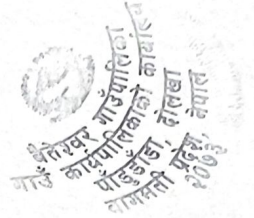 बैतेश्वर गाउँपालिका
गाउँ कार्यपालिकाको कार्यालय
पाँडुडाँडा, दोलखा
बागमती प्रदेश, नेपाल
२०७३